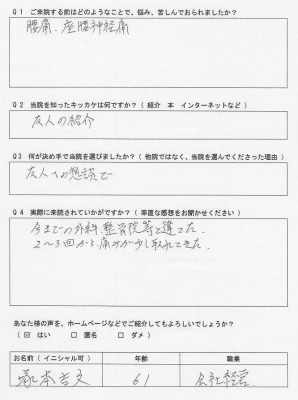 Q1 ご来院する前はどのようなことで、悩み、苦しんでおられましたか?
腰痛、座腰神経痛
Q2 当院を知ったキッカケは何ですか?(紹介 本 インターネットなど)
友人の紹介
Q3 何が決め手で当院を選びましたか?(他院ではなく、当院を選んでくださった理由)
友人への想談で
Q4 実際に来院されていかがですか?(率直な感想をお聞かせください)
今までの外科、整骨院等と違てた。
2〜3回から痛みが少し取れてきた。
あなた様の声を、ホームページなどでご紹介してもよろしいでしょうか?
(☑ はい □ 匿名 □ ダメ)
お名前(イニシャル可) 年齢 職業
塚本吉文 61 会社経営